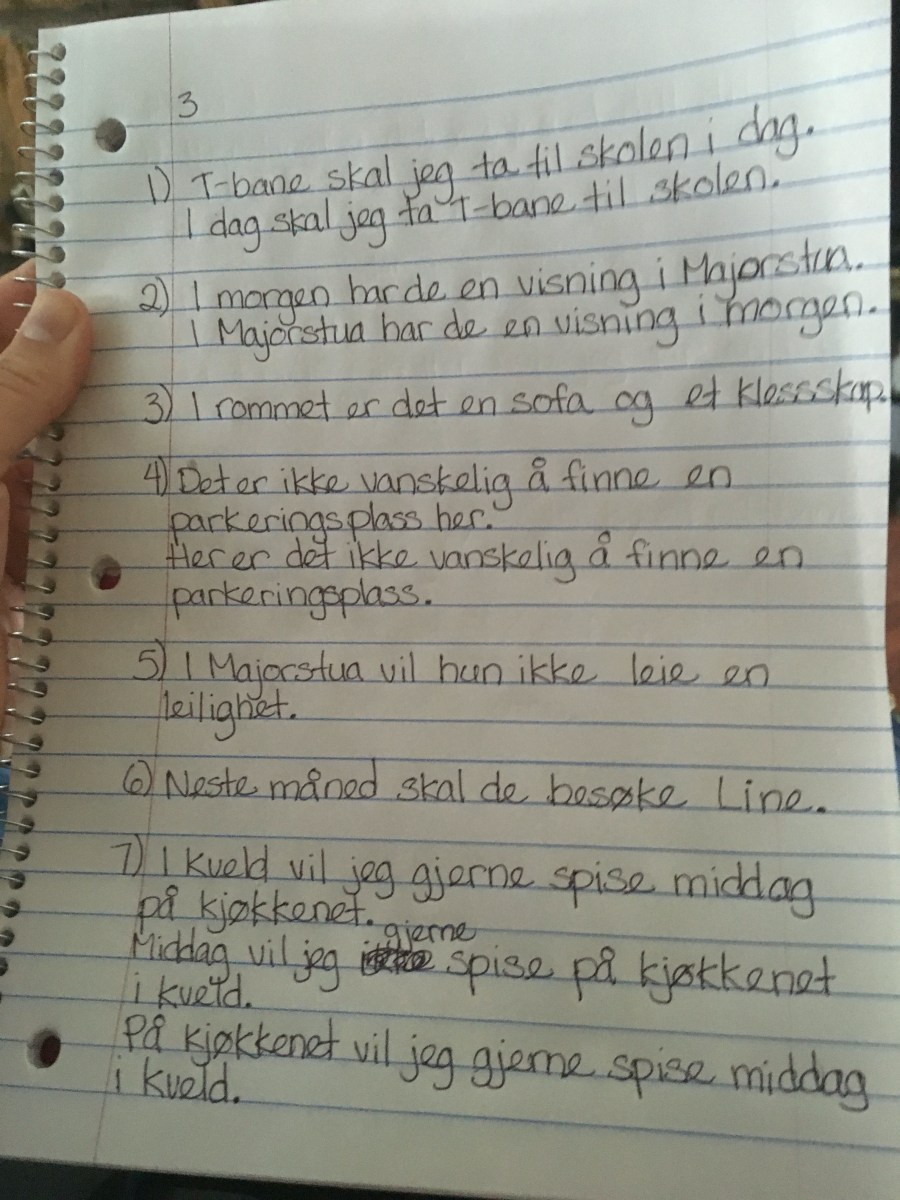 3
1) T-bane skal jeg ta til skolen i dag.
I dag skal jeg ta T-bane til skolen.
2) I morgen har de en visning i Majorstua.
I Majorstua har de en visning i morgen.
3) I rommet er det en sofa og et klessskap.
4) Det er ikke vanskelig å finne en
parkeringsplass her.
Her er det ikke vanskelig å finne en
parkeringsplass.
5) I Majorstua vil hun ikke leie en
leilighet.
6) Neste måned skal de besøke Line.
7) I kveld vil jeg gjerne spise middag
på kjøkkenet.
gjerne
Middag vil jeg spise på kjøkkenet
i kveld.
På kjøkkenet vil jeg gjerne spise middag
i kveld.